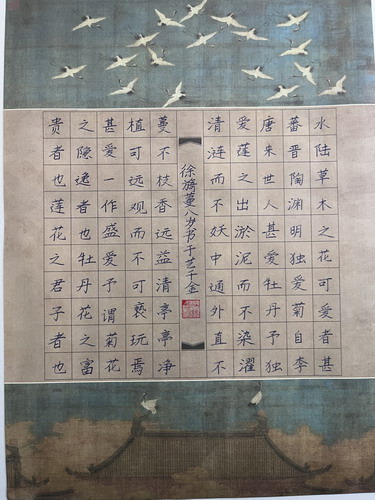 水陆草木之花可爱者甚
蕃晋陶渊明独爱菊自李
唐来世人甚爱牡丹予独
爱莲之出淤泥而不染濯
清涟而不妖中通外直不
徐漪蔓八岁书于艺千金
蔓不枝香远益清亭亭净
植可远观而不可亵玩焉
甚爱一作盛爱予谓菊花
之隐逸者也牡丹花之富
贵者也莲花之君子者也